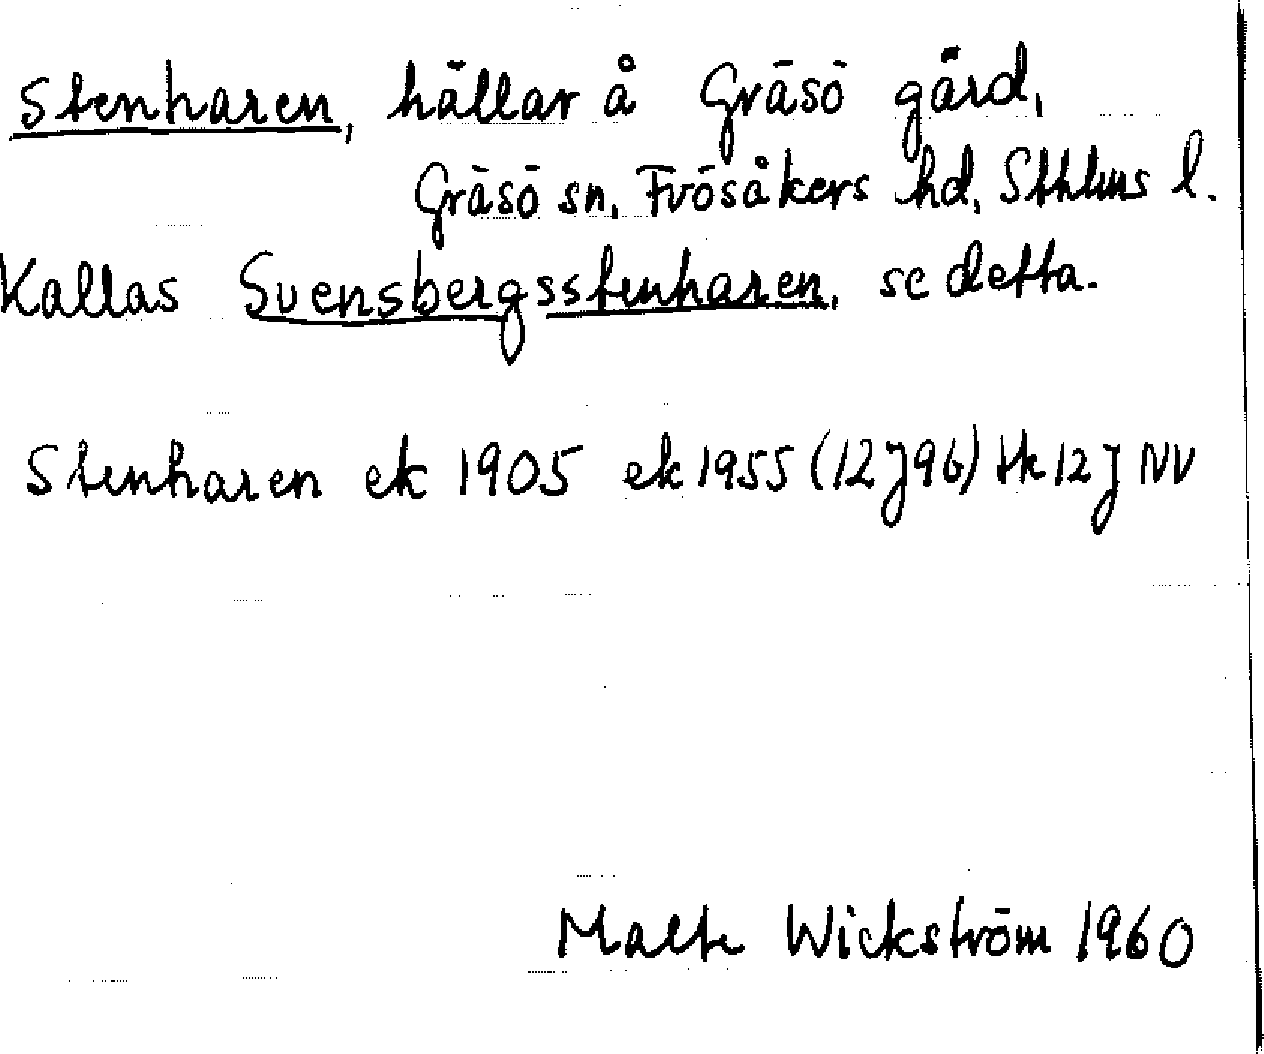 Stenharen, hällar å Gräsö gård,
Gräsö sn, Frösåkers hd, Sthlms l.
Kallas Svensbergsstenharen, se detta.
Stenharen ek 1905 ek 1955 (12J96) tk 12J NV
Malte Wickström 1960